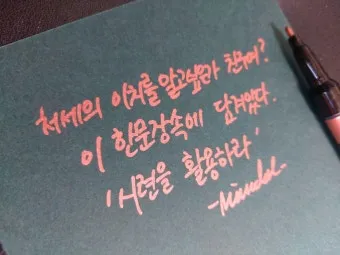 처세의 이치를 알고싶은가 친구여?
이 한문장속에 담겨있다.
'시련을 활용하라'
-Mandol-